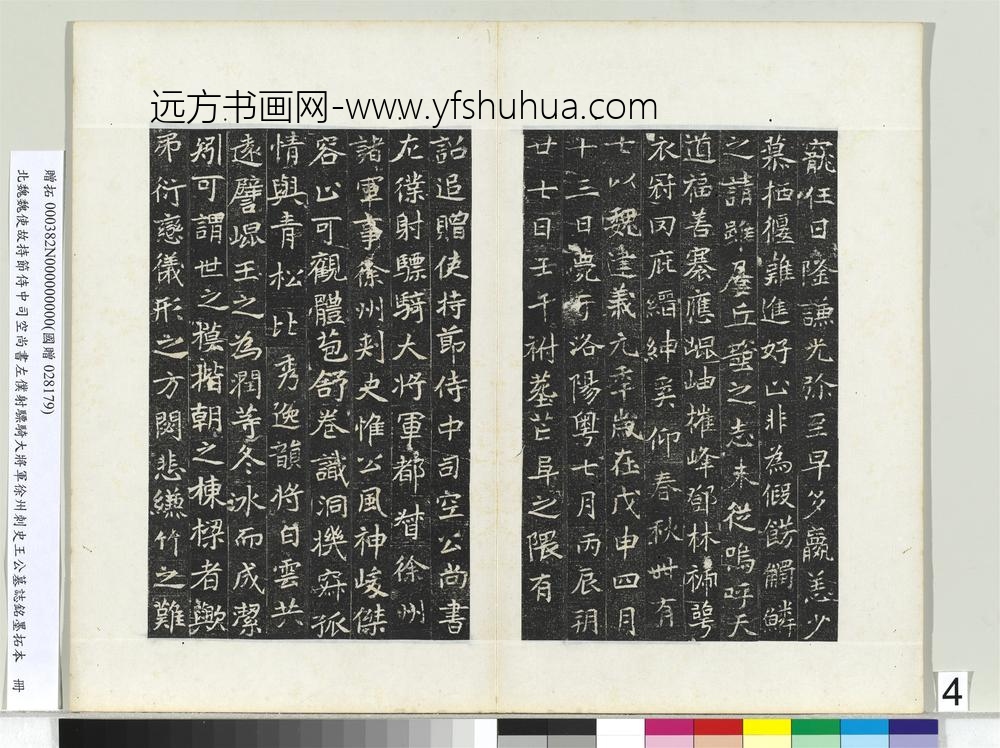 远方书画网-www.yfshuhua.com
寵任日隆謙光弥至早多羸恙少
慕栖偃難進好止非為假餝觸鱗
之請雖屢丘蘁之志未從嗚呼天
道福善寡應崐岫摧峰鄧林褫萼
衣冠罔庇縉紳奚仰春秋卌有
七以魏建義元年歲在戊申四月
十三日薨于洛陽粵七月丙辰朔
廿七日壬午祔葬芒阜之隈有
詔追贈使持節侍中司空公尚書
左僕射驃騎大將軍都督徐州
諸軍事徐州刺史惟公風神峻傑
容止可觀體苞舒卷識洞機寂孤
情與青松比秀逸韻將白雲共
遠譬崐玉之為潤等冬冰而成潔
矧可謂世之模揩朝之棟樑者歟
弟衍戀儀形之方閟悲縑竹之難
贈拓 000382N000000000(國贈 028179)
北魏魏使故持節侍中司空尚書左僕射驃騎大將軍徐州刺史王公墓誌銘墨拓本 冊
4